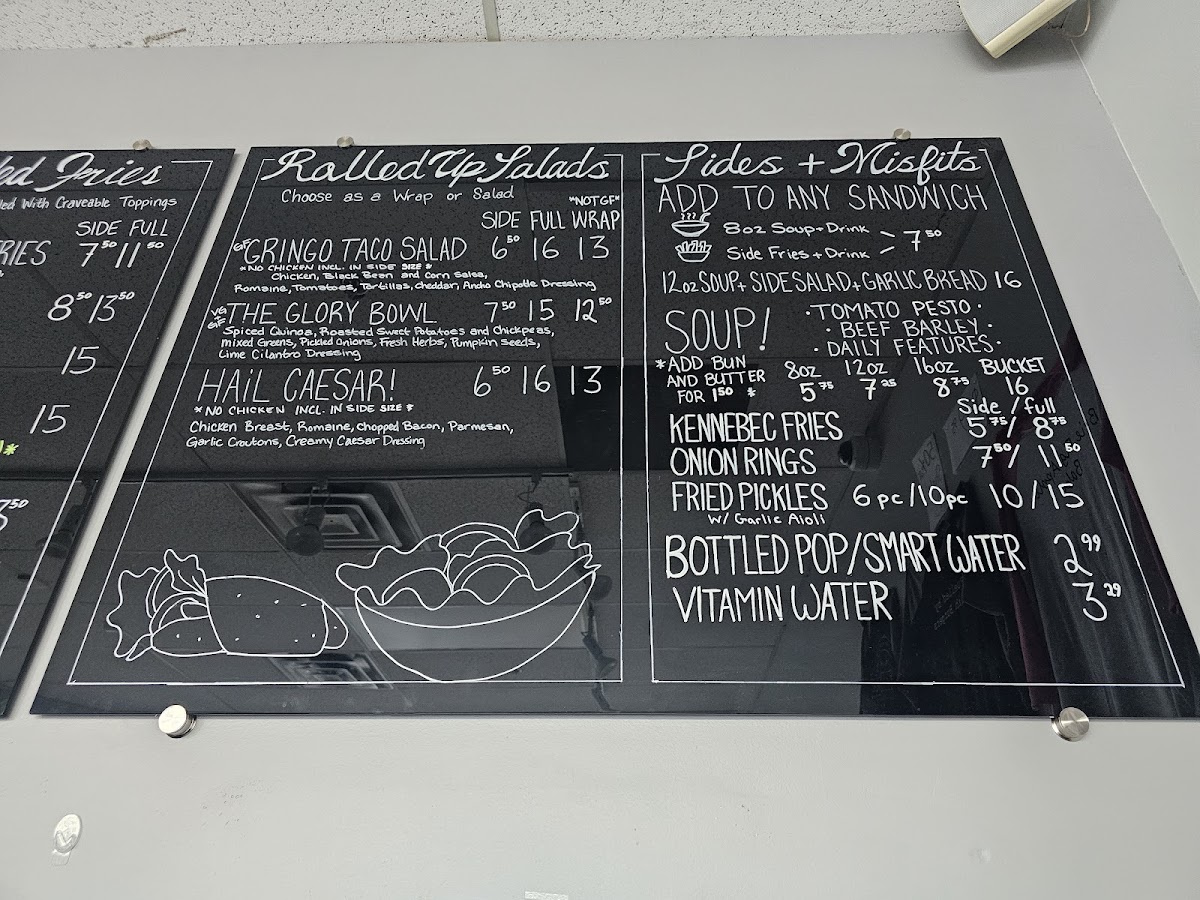 ed Fries
led With Craveable Toppings
SIDE FULL
RIES 7⁵⁰ 11⁵⁰
8⁵⁰ 13⁵⁰
15
15
3⁵⁰
Rolled Up Salads
Choose as a Wrap or Salad
"NOT GF"
SIDE FULL WRAP
GF GRINGO TACO SALAD 6⁵⁰ 16 13
*NO CHICKEN INCL. IN SIDE SIZE*
Chicken, Black Bean and Corn Salsa,
Romaine, Tomatoes, Tortillas, Cheddar, Ancho Chipotle Dressing
VG + GF THE GLORY BOWL 7⁵⁰ 15 12⁵⁰
Spiced Quinoa, Roasted Sweet Potatoes and Chickpeas,
mixed Greens, Pickled Onions, Fresh Herbs, Pumpkin Seeds,
Lime Cilantro Dressing
HAIL CAESAR! 6⁵⁰ 16 13
*NO CHICKEN INCL. IN SIDE SIZE*
Chicken Breast, Romaine, Chopped Bacon, Parmesan,
Garlic Croutons, Creamy Caesar Dressing
Sides + Misfits
ADD TO ANY SANDWICH
8oz Soup + Drink > 7⁵⁰
Side Fries + Drink >
12oz SOUP + SIDE SALAD + GARLIC BREAD 16
SOUP!
· TOMATO PESTO ·
· BEEF BARLEY ·
· DAILY FEATURES ·
*ADD BUN AND BUTTER FOR 1⁵⁰ *
8oz 12oz 16oz BUCKET
5⁷⁵ 7²⁵ 8⁷⁵ 16
Side / full
KENNEBEC FRIES 5⁷⁵/ 8⁷⁵
ONION RINGS 7⁵⁰/ 11⁵⁰
FRIED PICKLES 6 pc /10 pc 10 / 15
W/ Garlic Aioli
BOTTLED POP/SMART WATER 2⁹⁹
VITAMIN WATER 3²⁹